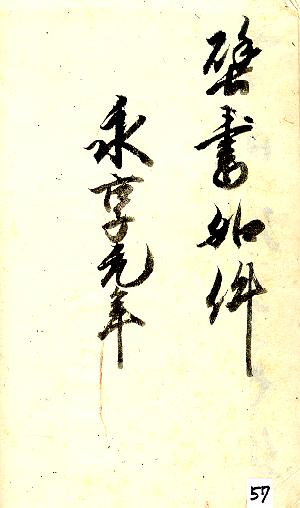 壁書如件
永享元年
57